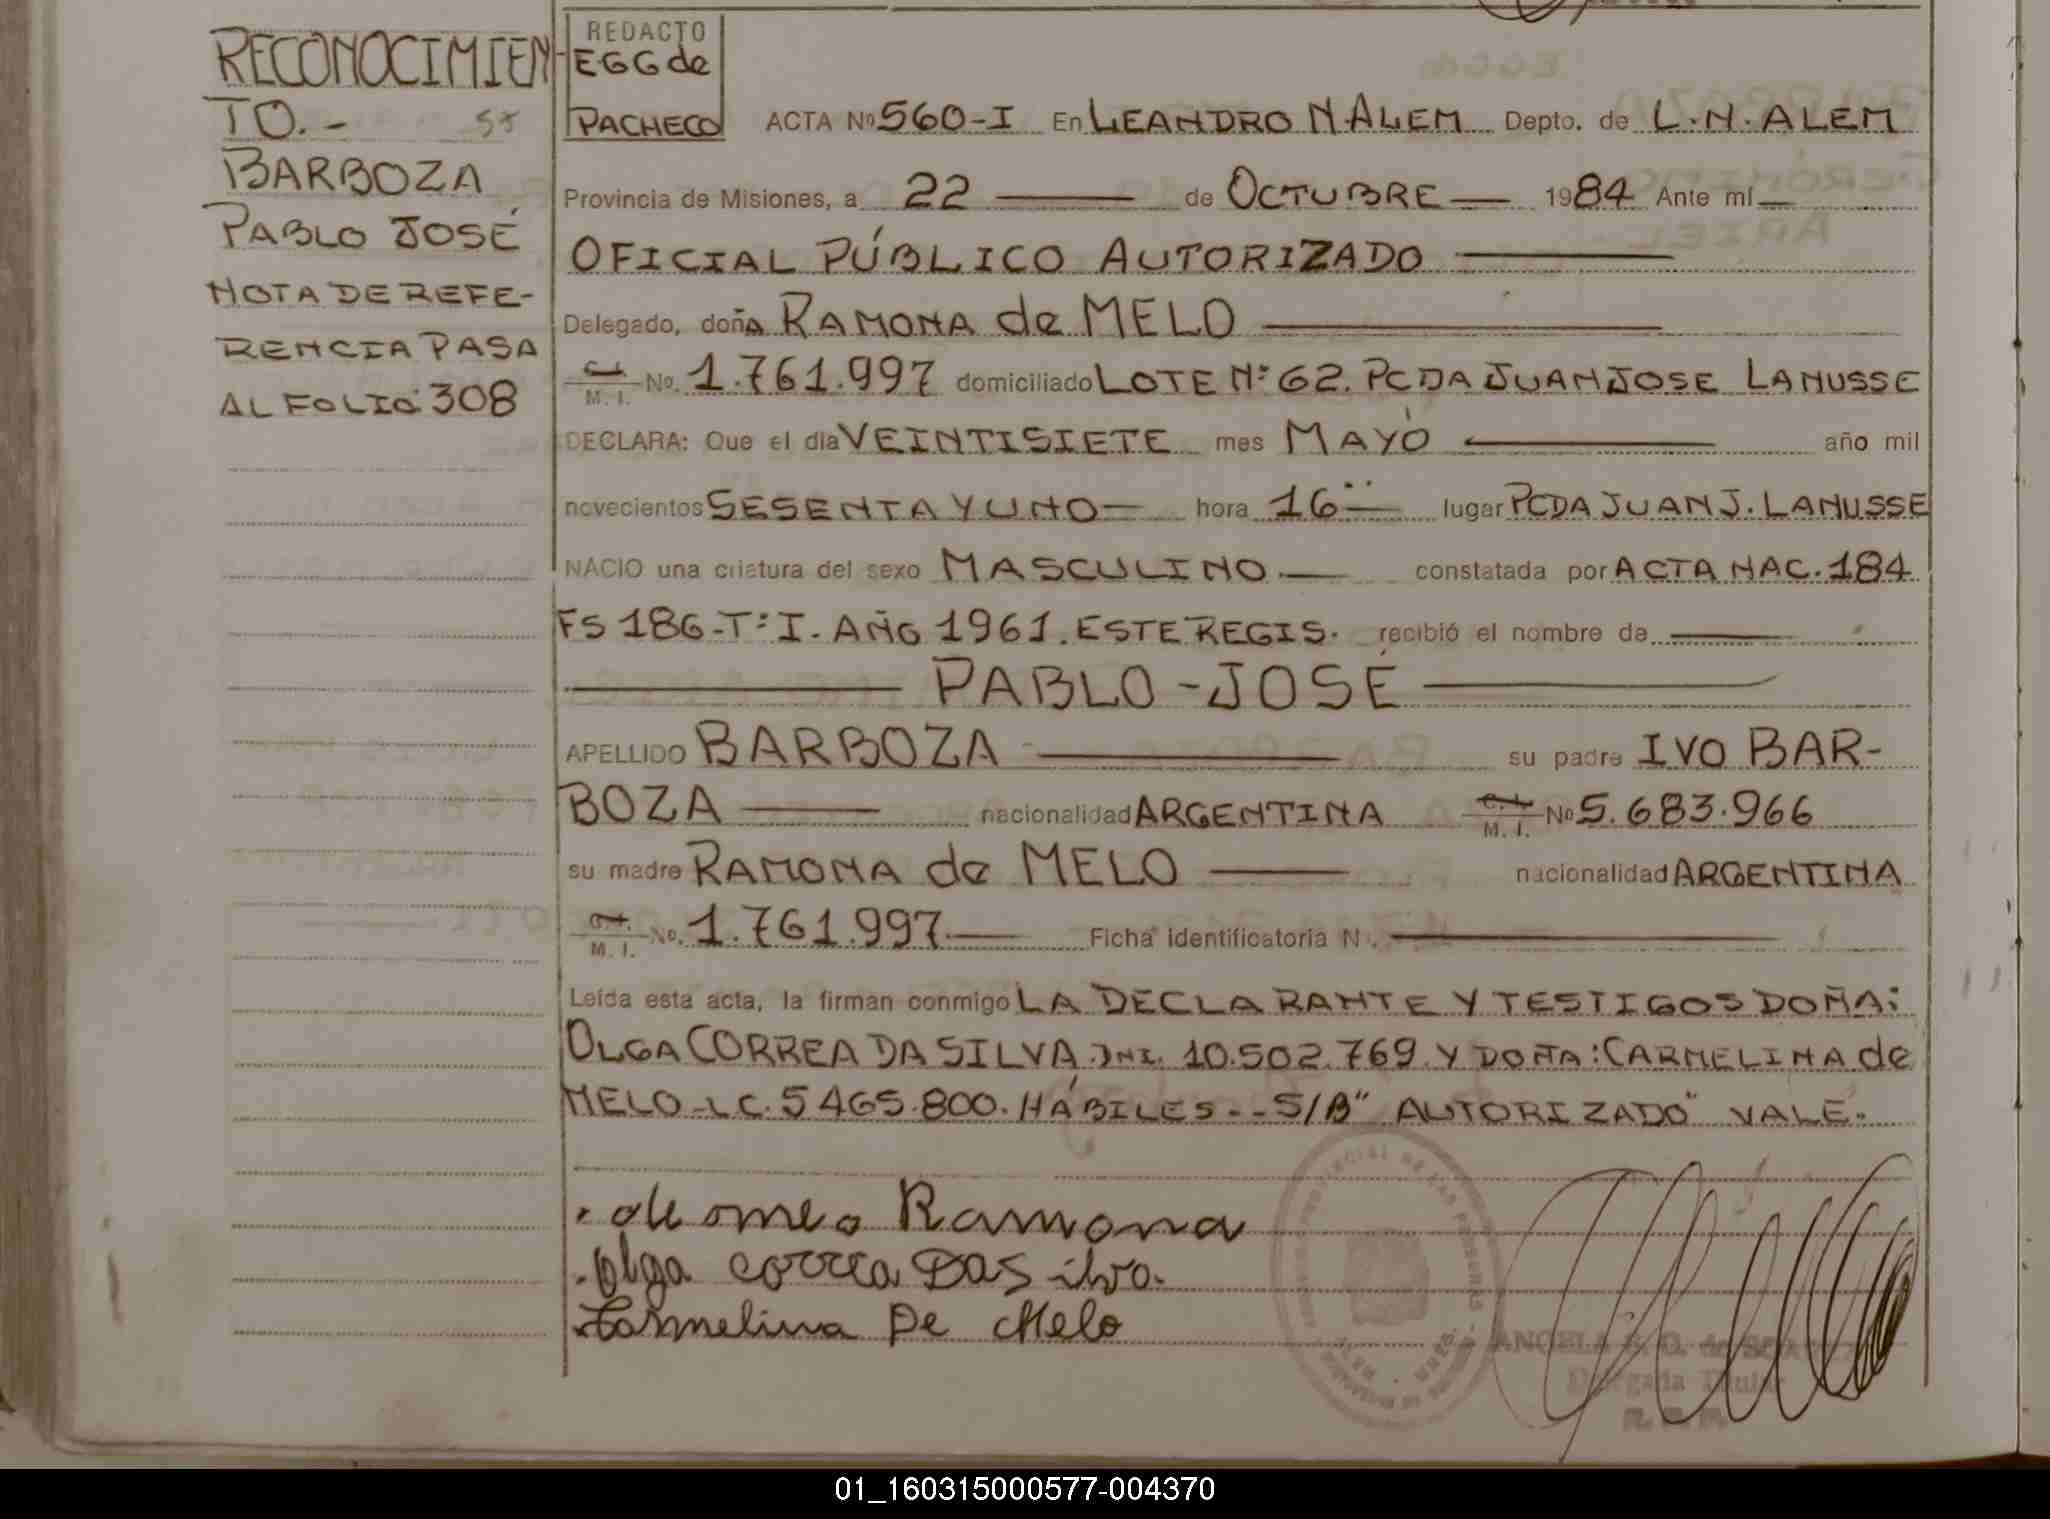 RECONOCIMIEN-
TO.-
BARBOZA
PABLO JOSÉ
NOTA DE REFE-
RENCIA PASA
AL FOLIO: 308
REDACTO
EGG de
PACHECO
ACTA Nº 560-I En LEANDRO N. ALEM Depto. de L.N. ALEM
Provincia de Misiones, a 22 de OCTUBRE 1984 Ante mí
OFICIAL PÚBLICO AUTORIZADO
Delegado, doña RAMONA de MELO
C.I. M. I. No. 1.761.997 domiciliado LOTE Nº 62. PCDA JUAN JOSE LANUSSE
DECLARA: Que el día VEINTISIETE mes MAYO año mil
novecientos SESENTA Y UNO hora 16 lugar PCDA JUAN J. LANUSSE
NACIO una criatura del sexo MASCULINO. constatada por ACTA NAC. 184
FS 186-Tº I. AÑO 1961. ESTE REGIS. recibió el nombre de
PABLO - JOSÉ
APELLIDO BARBOZA su padre IVO BAR-
BOZA nacionalidad ARGENTINA C.I. M. I. Nº 5.683.966
su madre RAMONA de MELO nacionalidad ARGENTINA
C.I. M. I. No. 1.761.997 Ficha identificatoria N.
Leída esta acta, la firman conmigo LA DECLARANTE Y TESTIGOS DOÑA:
OLGA CORREA DA SILVA. DNI. 10.502.769. Y DOÑA: CARMELINA de
MELO-LC. 5465.800. HÁBILES.- - S/B "AUTORIZADO" VALE.
Ramona
Olga correa Das ilva.
Carmelina De Melo
ANGELA
Delegada Titular
01_160315000577-004370